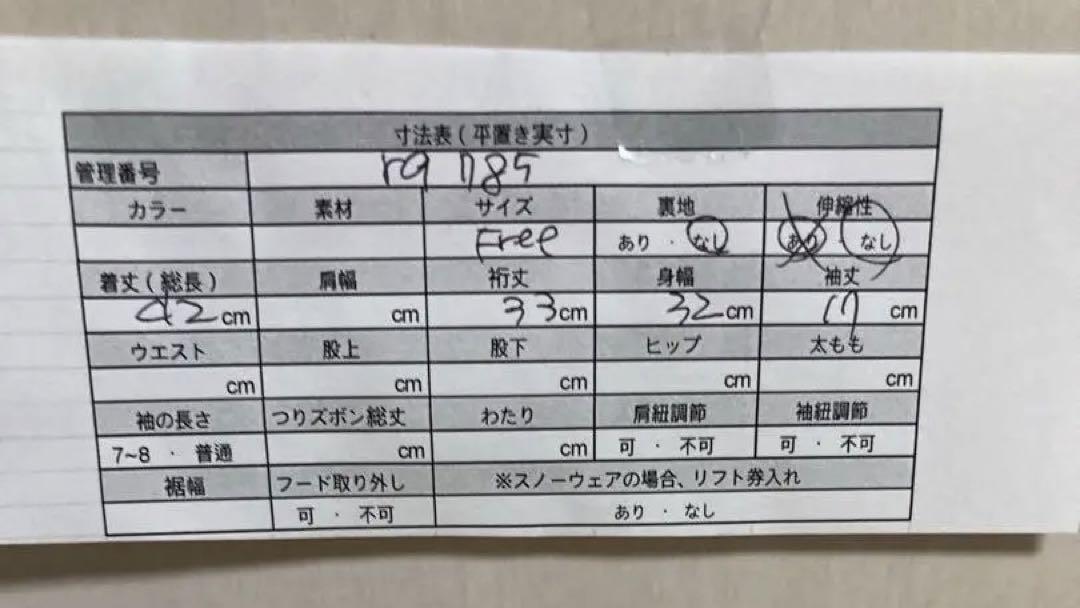 寸法表(平置き実寸)
管理番号 rq 785
カラー 素材 サイズ 裏地 伸縮性
Free あり・なし あり・なし
着丈(総長) 肩幅 裄丈 身幅 袖丈
42cm cm 33cm 32cm 17 cm
ウエスト 股上 股下 ヒップ 太もも
cm cm cm cm cm
袖の長さ つりズボン総丈 わたり 肩紐調節 袖紐調節
7~8 ・ 普通 cm cm 可 ・ 不可 可 ・ 不可
裾幅 フード取り外し ※スノーウェアの場合、リフト券入れ
可 ・ 不可 あり ・ なし